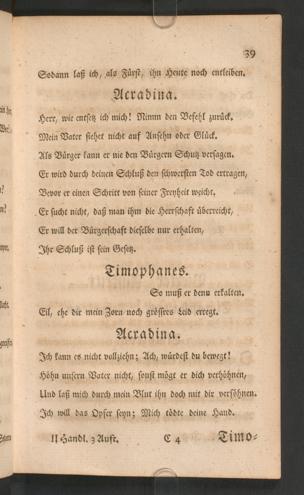 39
Sodann laß ich, als Fürst, ihn Heute noch entleiben.
Acradina.
Herr, wie entsetz ich mich! Nimm den Befehl zurück.
Mein Vater siehet nicht auf Ansehn oder Glück.
Als Bürger kann er nie den Bürgern Schutz versagen.
Er wird durch deinen Schluß den schwersten Tod ertragen,
Bevor er einen Schritt von seiner Freyheit weicht,
Er sucht nicht, daß man ihm die Herrschaft überreicht,
Er will der Bürgerschaft dieselbe nur erhalten,
Ihr Schluß ist sein Gesetz.
Timophanes.
So muß er denn erkalten.
Eil, ehe dir mein Zorn noch größres Leid erregt.
Acradina.
Ich kann es nicht vollziehn; Ach, würdest du bewegt!
Höhn unsern Vater nicht, sonst mögt er dich verhöhnen,
Und laß mich durch mein Blut ihn doch mit dir versöhnen.
Ich will das Opfer seyn; Mich tödte deine Hand.
II Handl. 3 Auft. C 4 Timo-